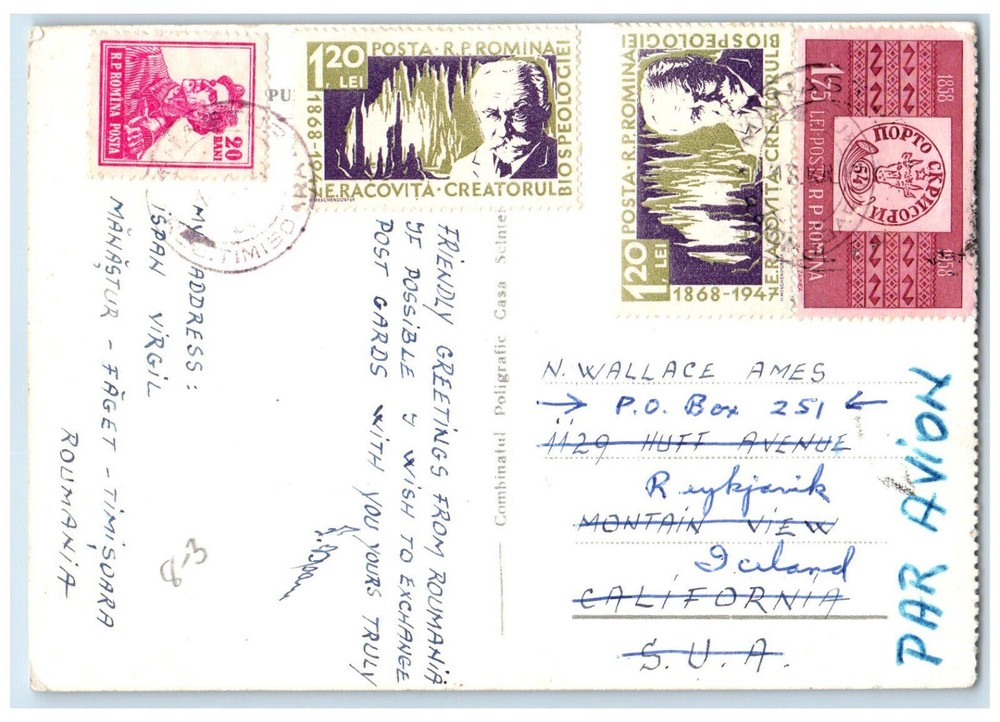 20
BANI
R.P. ROMINA POSTA
PU
1.20
LEI
POSTA · R.P. ROMINA
1868-194
E. RACOVITA · CREATORUL
BIOSPEOLOGIEI
1.20
LEI
POSTA · R.P. ROMINA
1868-1947
E. RACOVITA · CREATORUL
BIOSPEOLOGIEI
LEI · POSTA R.P. ROMINA
1858
1958
ПОРТО СКРИСОРИ
TIMIȘOARA
FRIENDLY GREETINGS FROM ROUMANIA
IF POSSIBLE Y WISH TO EXCHANGE
POST CARDS WITH YOU YOURS TRULY
MY ADDRESS:
IȘPAN VIRGIL
MĂNĂȘTUR - FĂGET - TIMIȘOARA
ROUMANIA
8-3
Combinatul Poligrafic Casa Scînte
N. WALLACE AMES
→ P.O. Box 251 ←
1129 HUFF AVENUE
Reykjavik
MONTAIN VIEW
Iceland
CALIFORNIA
S.U.A.
PAR AVION